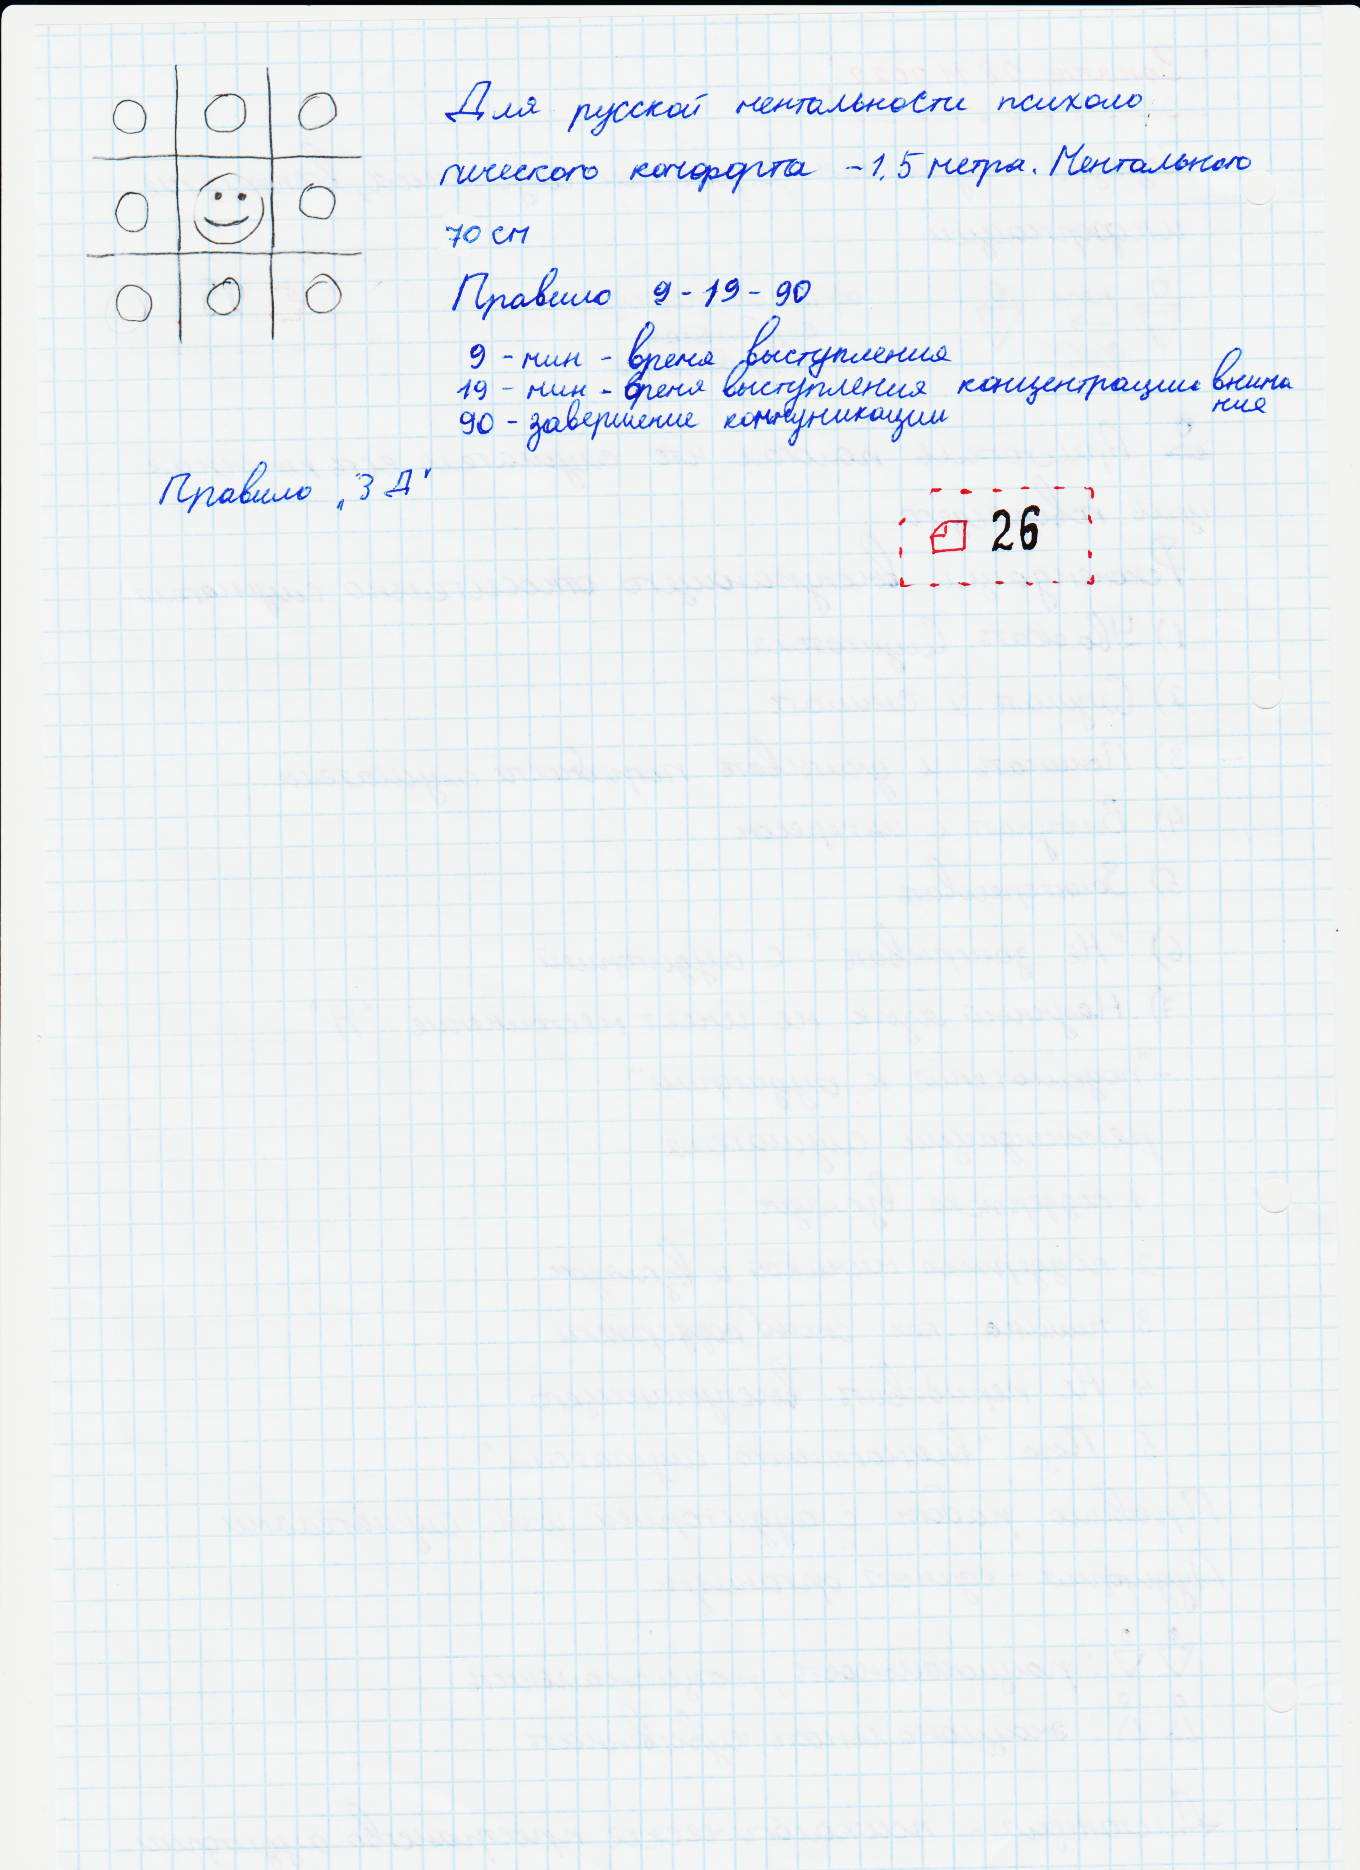 Для русской ментальности психоло
гического комфорта - 1,5 метра. Ментального
70 см
Правило 9 - 19 - 90
9 - мин - время выступления
19 - мин - время выступления концентрации внима
ния
90 - завершение коммуникации
Правило „3 Д"
26